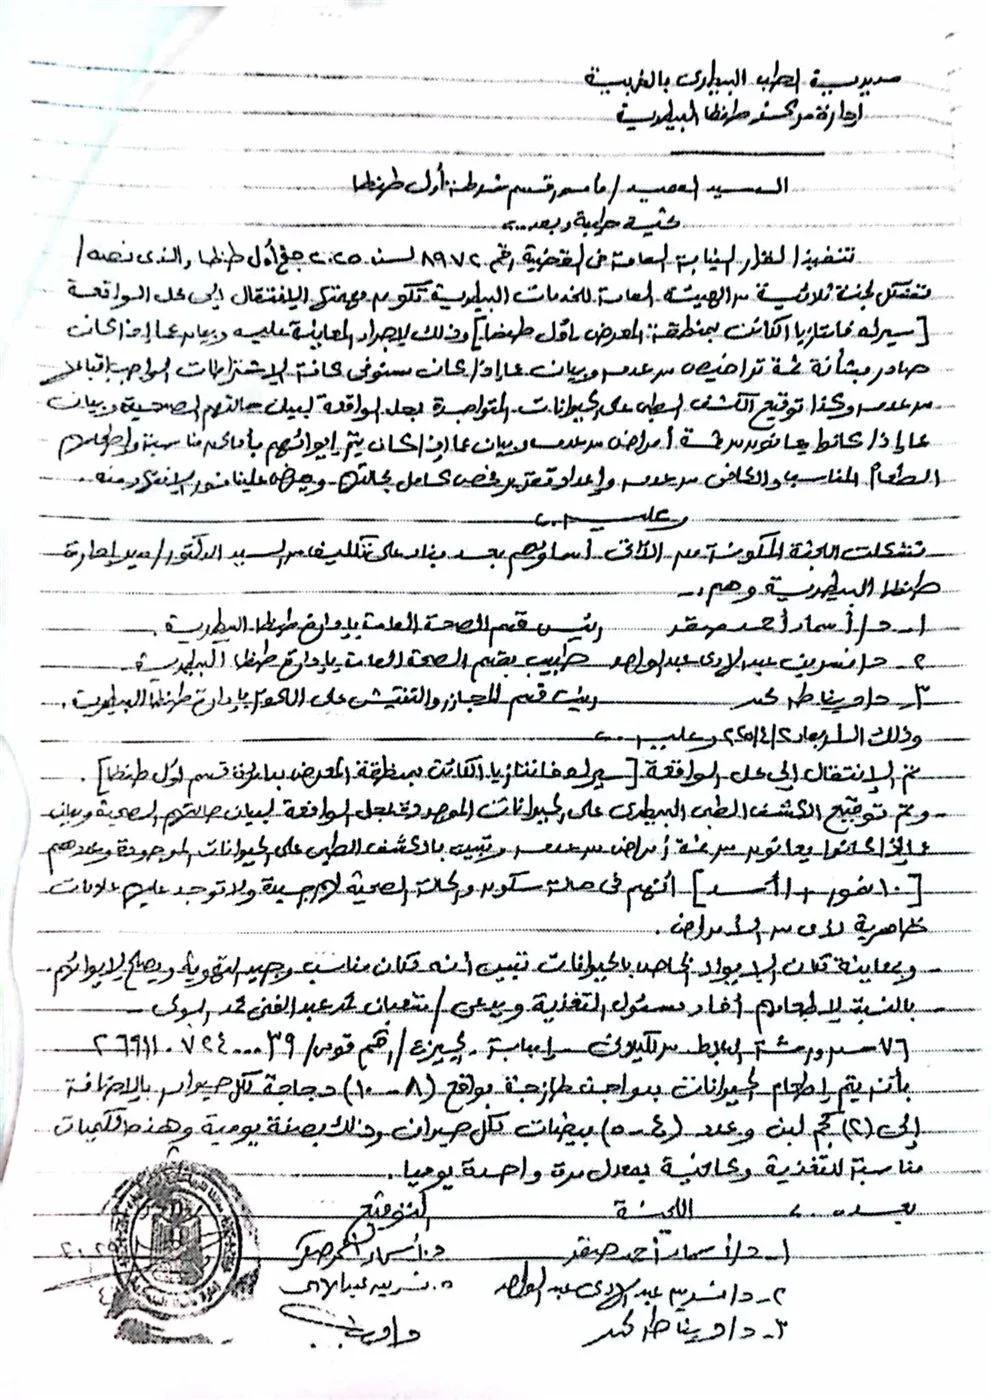 مديرية الطب البيطرى بالغربية
إدارة مركز طنطا البيطرية
السيد العميد / مأمور قسم شرطة أول طنطا
تحية طيبة وبعد ...
تنفيذا لقرار النيابة العامة فى القضية رقم ٨٩٧٢ لسنة ٢٠٢٥ جنح أول طنطا والذى نصه /
تشكل لجنة ثلاثية من الهيئة العامة للخدمات البيطرية تكون مهمتها الإنتقال إلى محل الواقعة
[ سيرك فانتازيا الكائن بمنطقة المعرض بأول طنطا ] وذلك لإجراء المعاينة عليه وبيان عما إذا كان
صادر بشأنه ثمة تراخيص من عدمه وبيان عما إذا كان مستوفى كافة الإشتراطات الواجب إتباعها
من عدمه وكذا توقيع الكشف الطبى على الحيوانات المتواجدة بمحل الواقعة لبيان حالتهم الصحية وبيان
عما إذا كانوا يعانون من ثمة أمراض من عدمه وبيان عما إذا كان يتم إيوائهم بأماكن مناسبة وإطعامهم
الطعام المناسب والكافى من عدمه وإعداد تقرير مفصل كامل بحالتهم ويعرض علينا فور الإنتهاء منه .
وعليه ..
تشكلت اللجنة المكونة من الآتى أسماؤهم بعد بناء على تكليف من السيد الدكتور / مدير إدارة
طنطا البيطرية وهم ..
١- د / أسماء أحمد صقر رئيس قسم الصحة العامة بإدارة طنطا البيطرية .
٢- د / نسرين عبد الهادى عبد الواحد طبيب بقسم الصحة العامة بإدارة طنطا البيطرية
٣- د / ويناط محمد رئيس قسم المجازر والتفتيش على اللحوم بإدارة طنطا البيطرية .
وذلك الأربعاء ٢ / ٤ / ٢٠٢٥ وعليه ..
تم الإنتقال إلى محل الواقعة [ سيرك فانتازيا الكائن بمنطقة المعرض بدائرة قسم أول طنطا ] .
وتم توقيع الكشف الطبى البيطرى على الحيوانات الموجودة بمحل الواقعة لبيان حالتهم الصحية وبيان
عما إذا كانوا يعانون من ثمة أمراض من عدمه وتبين بالكشف الطبى على الحيوانات الموجودة وعددهم
[ ١٠ نمور - ١ أسد ] أنهم فى حالة سكون والحالة الصحية لهم جيدة ولا توجد عليهم علامات
ظاهرية لأى من الأمراض .
وبمعاينة مكان الإيواء الخاص بالحيوانات تبين أنه مكان مناسب وجيد التهوية ويصلح لإيوائهم .
بالنسبة لإطعامهم أفاد مسئول التغذية ويدعى / شعبان محمد عبد الغنى محمد
٧٦ الكيلانى - إمبابة - الجيزة / رقم قومى / ٢٦٩١١٠٧٢٤٠٠٠٣٩
بأنه يتم إطعام الحيوانات بدواجن طازجة بواقع ( ٨ - ١٠ ) دجاجة لكل حيوان بالإضافة
إلى (٢) كجم لبن وعدد ( ٤ - ٥ ) بيضات لكل حيوان وذلك بصفة يومية وهذه الكميات
مناسبة للتغذية وكافية بمعدل مرة واحدة يوميا .
بعد ... اللجنة التوقيع
١- د / أسماء أحمد صقر د. أسماء أحمد صقر
٢- د / نسرين عبد الهادى عبد الواحد د. نسرين عبد الهادى
٣- د / ويناط محمد